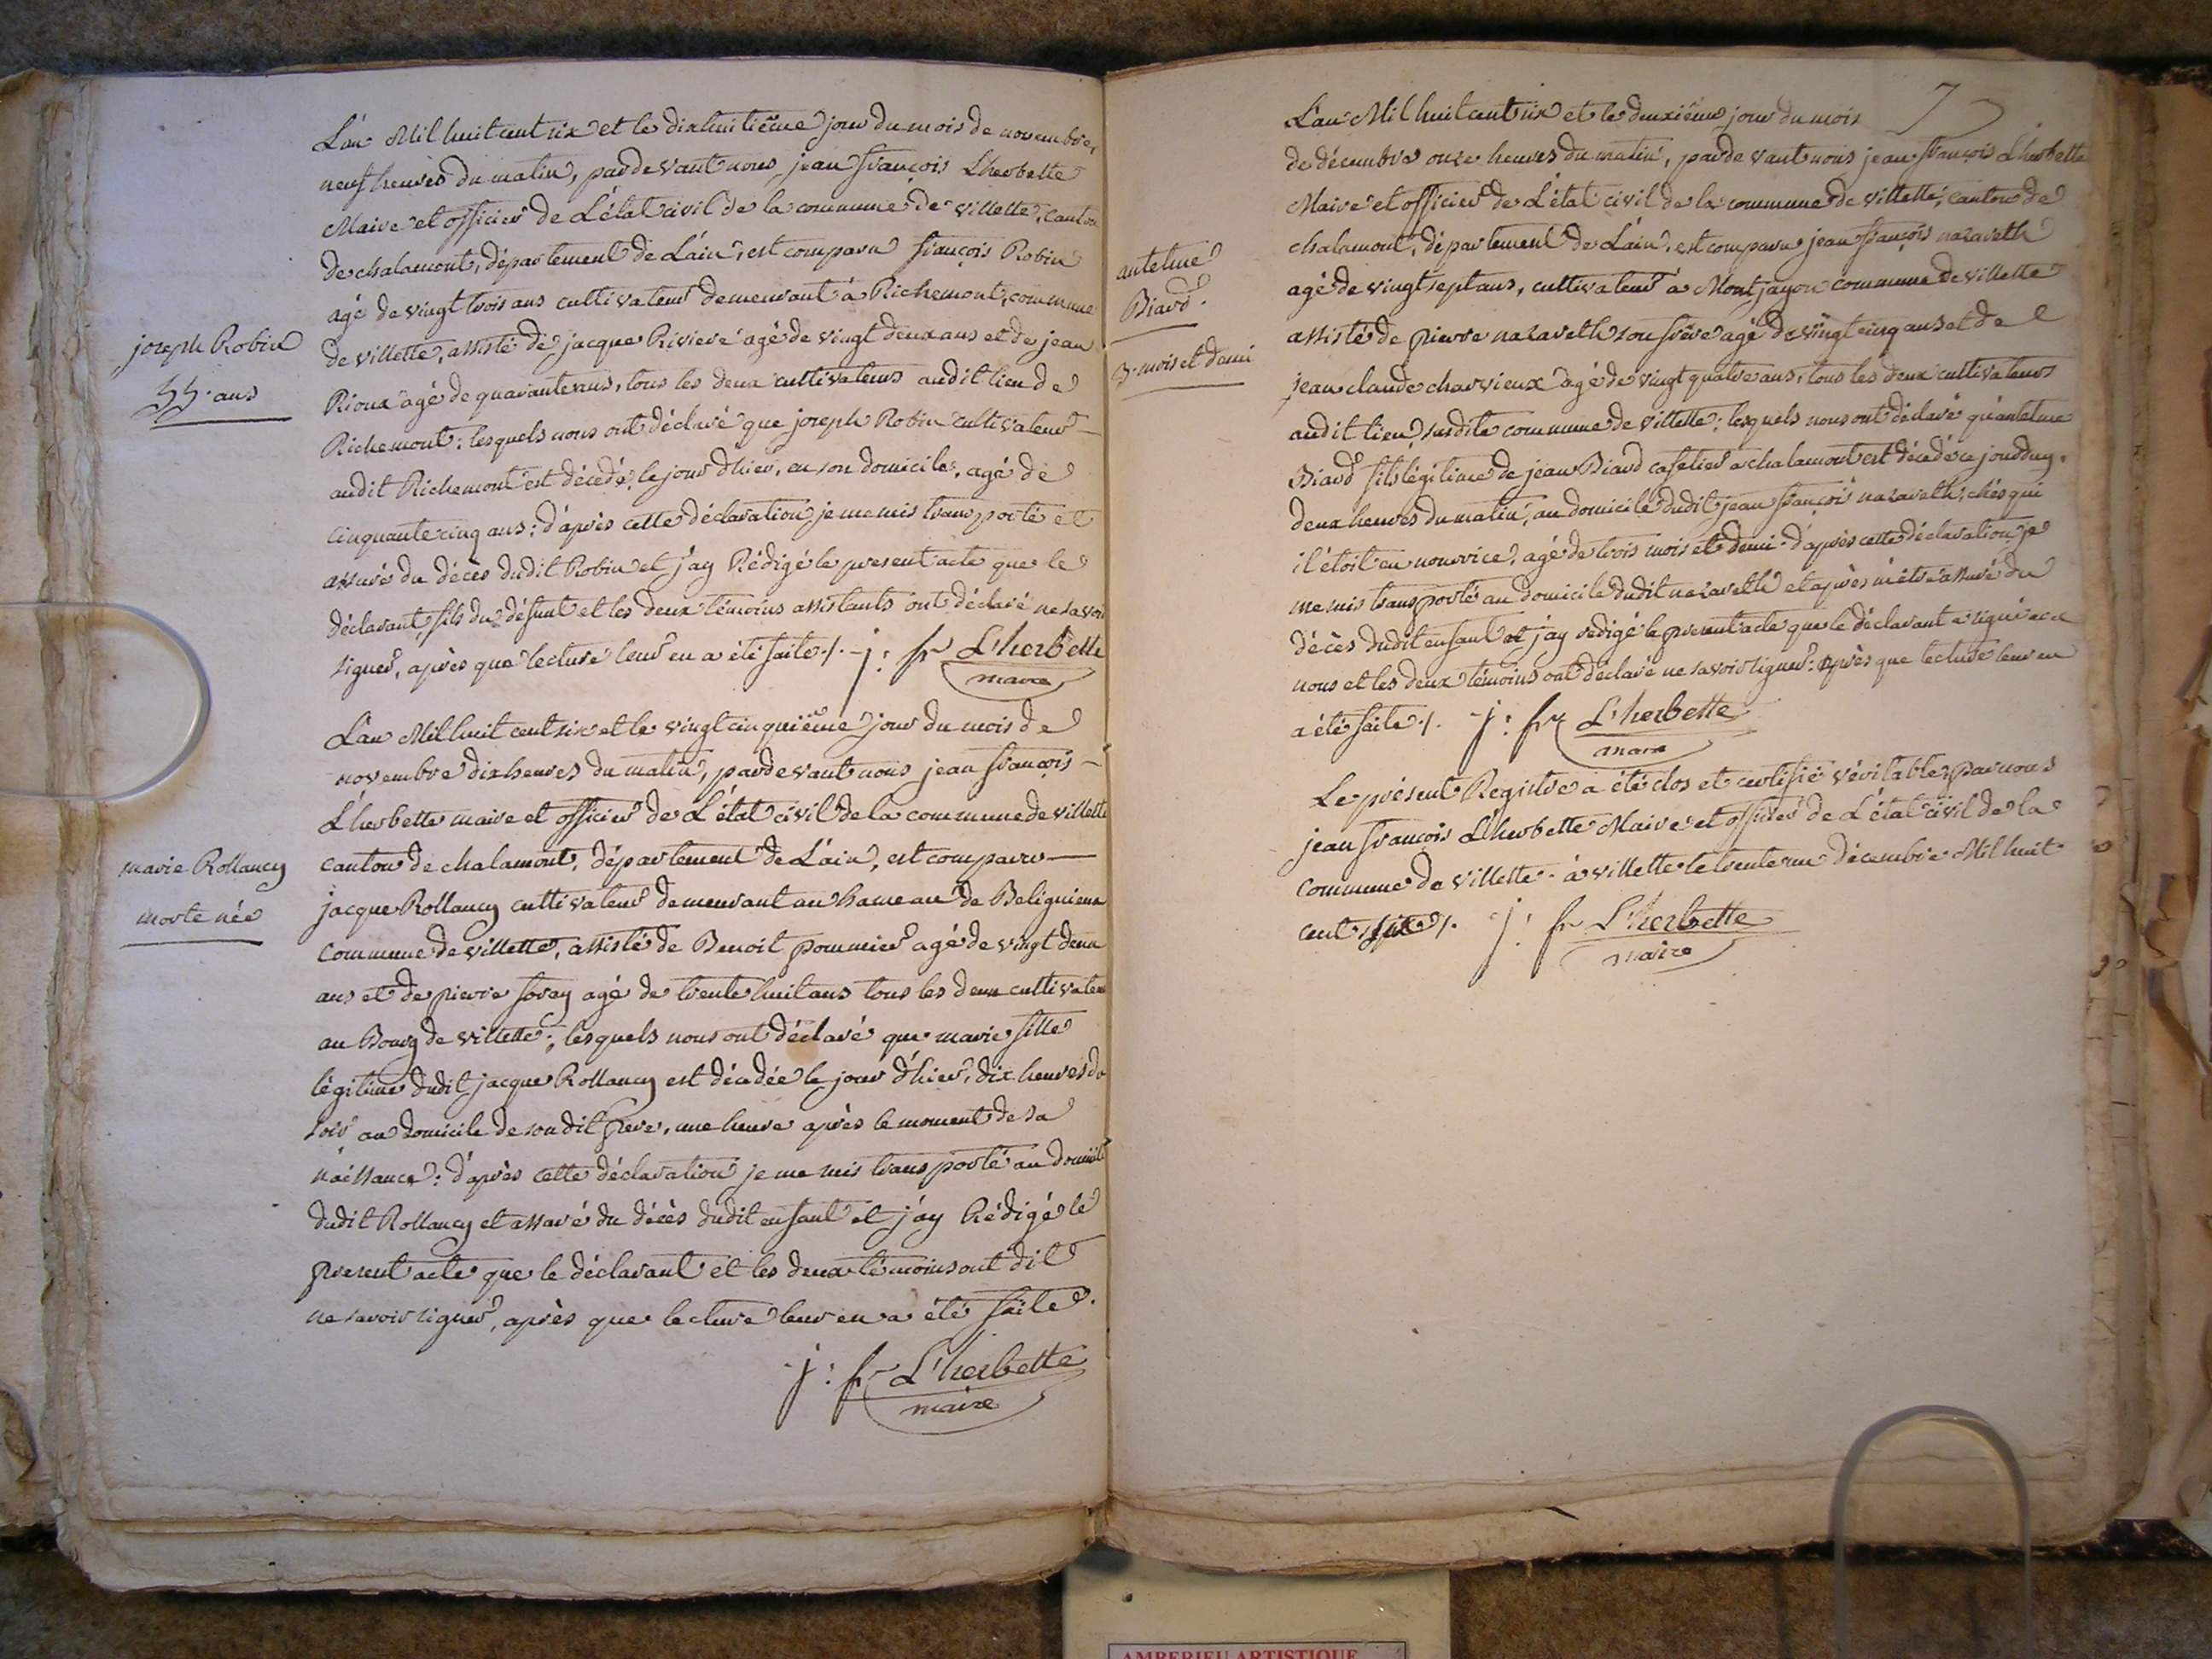 L'an Mil huit cent six et le dixhuitième jour du mois de novembre,
neuf heures du matin, pardevant nous jean françois Lherbette
Maire et officier de L'état civil de la commune de villette, canton
de chalamont, département de L'ain, est comparu françois Robin
agé de vingt trois ans cultivateur demeurant à Richemont, commune
de villette, assisté de jacque Riviere agé de vingt deux ans et de jean
Rioux agé de quarante ans, tous les deux cultivateurs audit lieu de
Richemont: lesquels nous ont déclaré que joseph Robin cultivateur
audit Richemont est décedé, le jour d'hier, en son domicile, agé de
cinquante cinq ans: d'après cette déclaration je me mis transporté et
assuré du décès dudit Robin et j'ay Rédigé le present acte que le
déclarant, fils du défunt et les deux témoins assistants ont déclaré ne savoir
signer, après que lecture leur en a été faite ./. j: fr L'herbette
maire
joseph Robin
55. ans
L'an Mil huit cent six et le vingt cinquième jour du mois de
novembre dix heures du matin, pardevant nous jean françois
L'herbette maire et officier de L'état civil de la commune de villette
canton de chalamont, département de L'ain, est comparu
jacque Rollancy cultivateur demeurant au hameau de Beliguieux
commune de villette, assisté de Benoit pommier agé de vingt deux
ans et de pierre foray agé de trente huit ans tous les deux cultivateurs
au Bourg de villette; lesquels nous ont déclaré que marie fille
légitime dudit jacque Rollancy est décedée le jour d'hier, dix heures du
soir au domicile de son dit père, une heure après le moment de sa
naissance: d'après cette déclaration je me mis transporté au domicile
dudit Rollancy et assuré du décès dudit enfant et j'ay Rédigé le
present acte que le déclarant et les deux témoins ont dit
ne savoir signer, après que lecture leur en a été faite.
j: fr L'herbette
maire
marie Rollancy
morte née
7
L'an Mil huit cent six et le deuxième jour du mois
de décembre onze heures du matin, pardevant nous jean françois Lherbette
Maire et officier de L'état civil de la commune de villette, canton de
chalamont, département de L'ain, est comparu jean françois nazareth
agé de vingt sept ans, cultivateur à Montjayon commune de villette
assisté de pierre nazareth son frère agé de vingt cinq ans et de
jean claude charvieux agé de vingt quatre ans, tous les deux cultivateurs
audit lieu, susdite commune de villette: lesquels nous ont déclaré qu'antelme
Biard fils légitime de jean Biard cafetier a chalamont est décedé ce jourduy
deux heures du matin, au domicile dudit jean françois nazareth, chés qui
il étoit en nourrice, agé de trois mois et demi: d'après cette déclaration je
me mis transporté au domicile dudit nazareth et après m'être assuré du
décès dudit enfant et j'ay redigé le present acte que le déclarant a signé avec
nous et les deux témoins ont déclaré ne savoir signer: après que lecture leur en
a été faite ./. j: fr L'herbette
maire
antelme
Biard.
3. mois et demi
Le présent Registre a été clos et certifié véritable, par nous
jean françois L'herbette Maire et officier de L'état civil de la
commune de villette. à villette le trente un décembre Mil huit
cent six ./. j: fr L'herbette
maire
AMBERIEU ARTISTIQUE